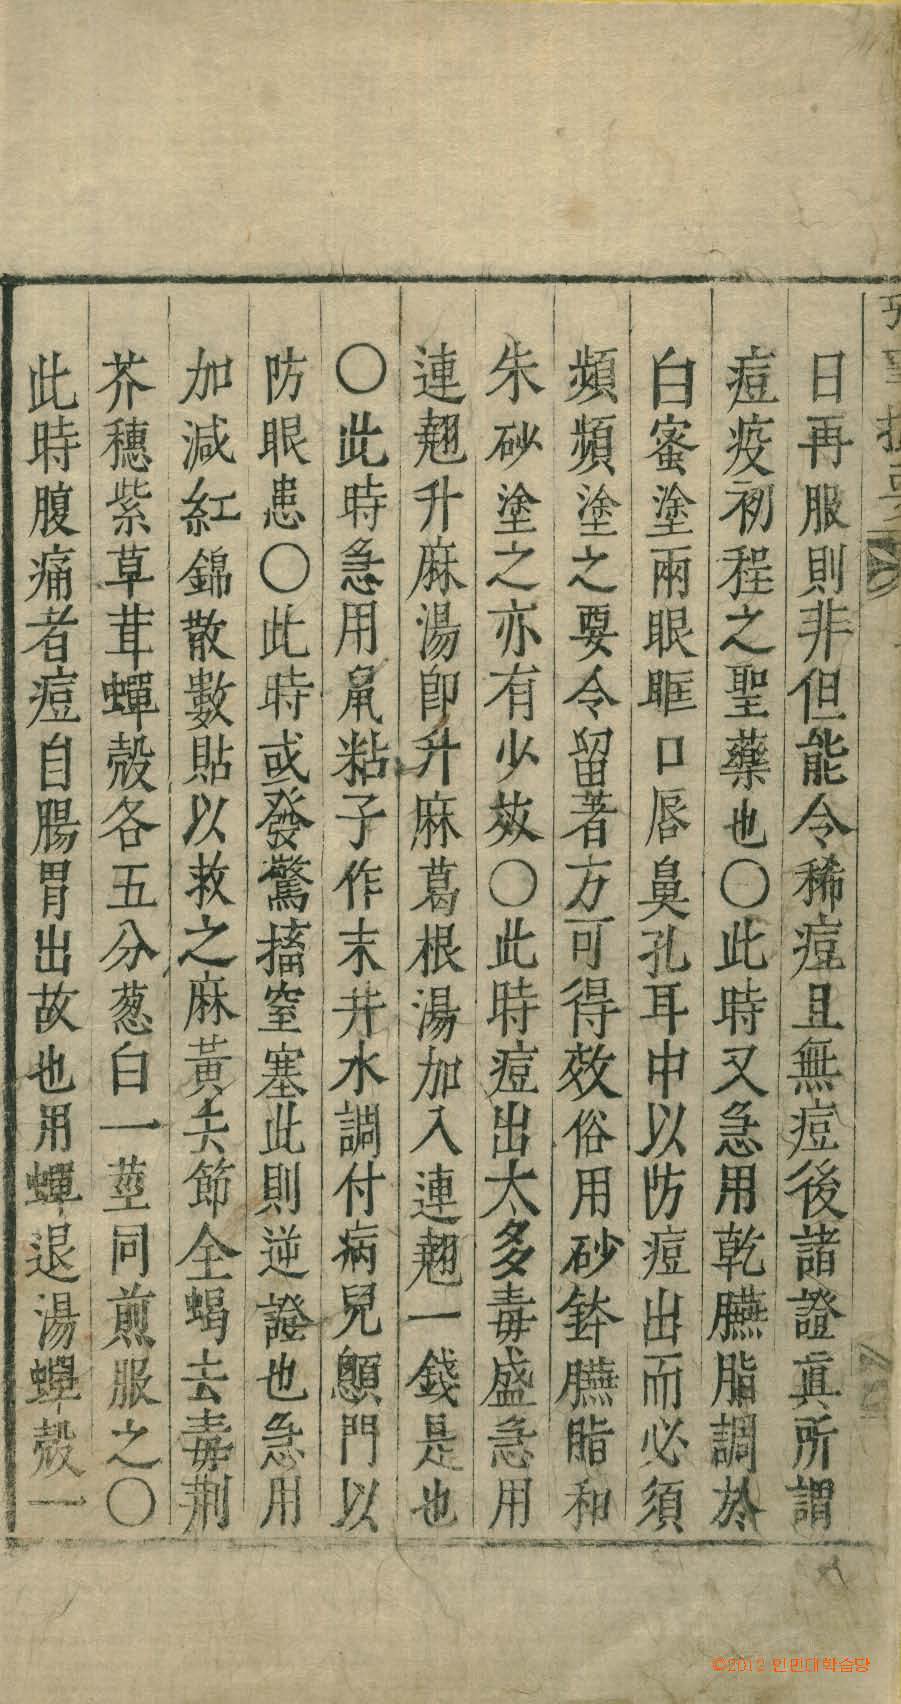 日再服則非但能令稀痘且無痘後諸證眞所謂
痘疫初程之聖藥也〇此時又急用乾臙脂調於
白蜜塗兩眼眶口唇鼻孔耳中以防痘出而必須
頻頻塗之要令留著方可得效俗用砂鉢臙脂和
朱砂塗之亦有少效〇此時痘出太多毒盛急用
連翹升麻湯卽升麻葛根湯加入連翹一錢是也
〇此時急用鼠粘子作末井水調付病兒顖門以
防眼患〇此時或發驚搐窒塞此則逆證也急用
加減紅錦散數貼以救之麻黃去節全蝎去毒荊
芥穗紫草茸蟬殼各五分葱白一莖同煎服之〇
此時腹痛者痘自腸胃出故也用蟬退湯蟬殼一
©2012 인민대학습당